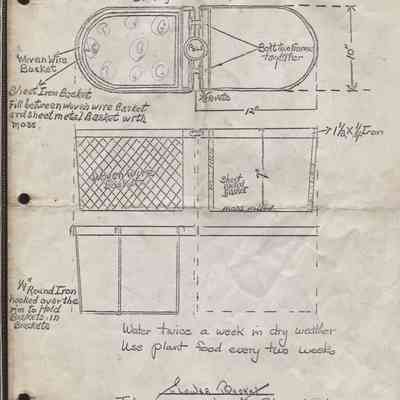 Woven Wire
Basket
Sheet Iron Basket
Fill between woven wire Basket
and sheet metal Basket with
moss.
Bolt two frames
together
10"
Rivets
12"
1½ x ¼ Iron
Woven Wire
Basket
Sheet
metal
Basket
7"
moss
¼"
Round Iron
hooked over the
rim to Hold
Baskets in
Brackets
Water twice a week in dry weather
Use plant food every two weeks
Flower Basket